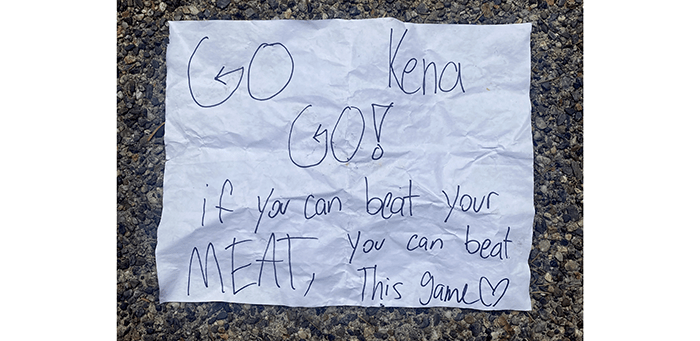 GO Kena
GO!
if you can beat your
MEAT, you can beat
This game♡